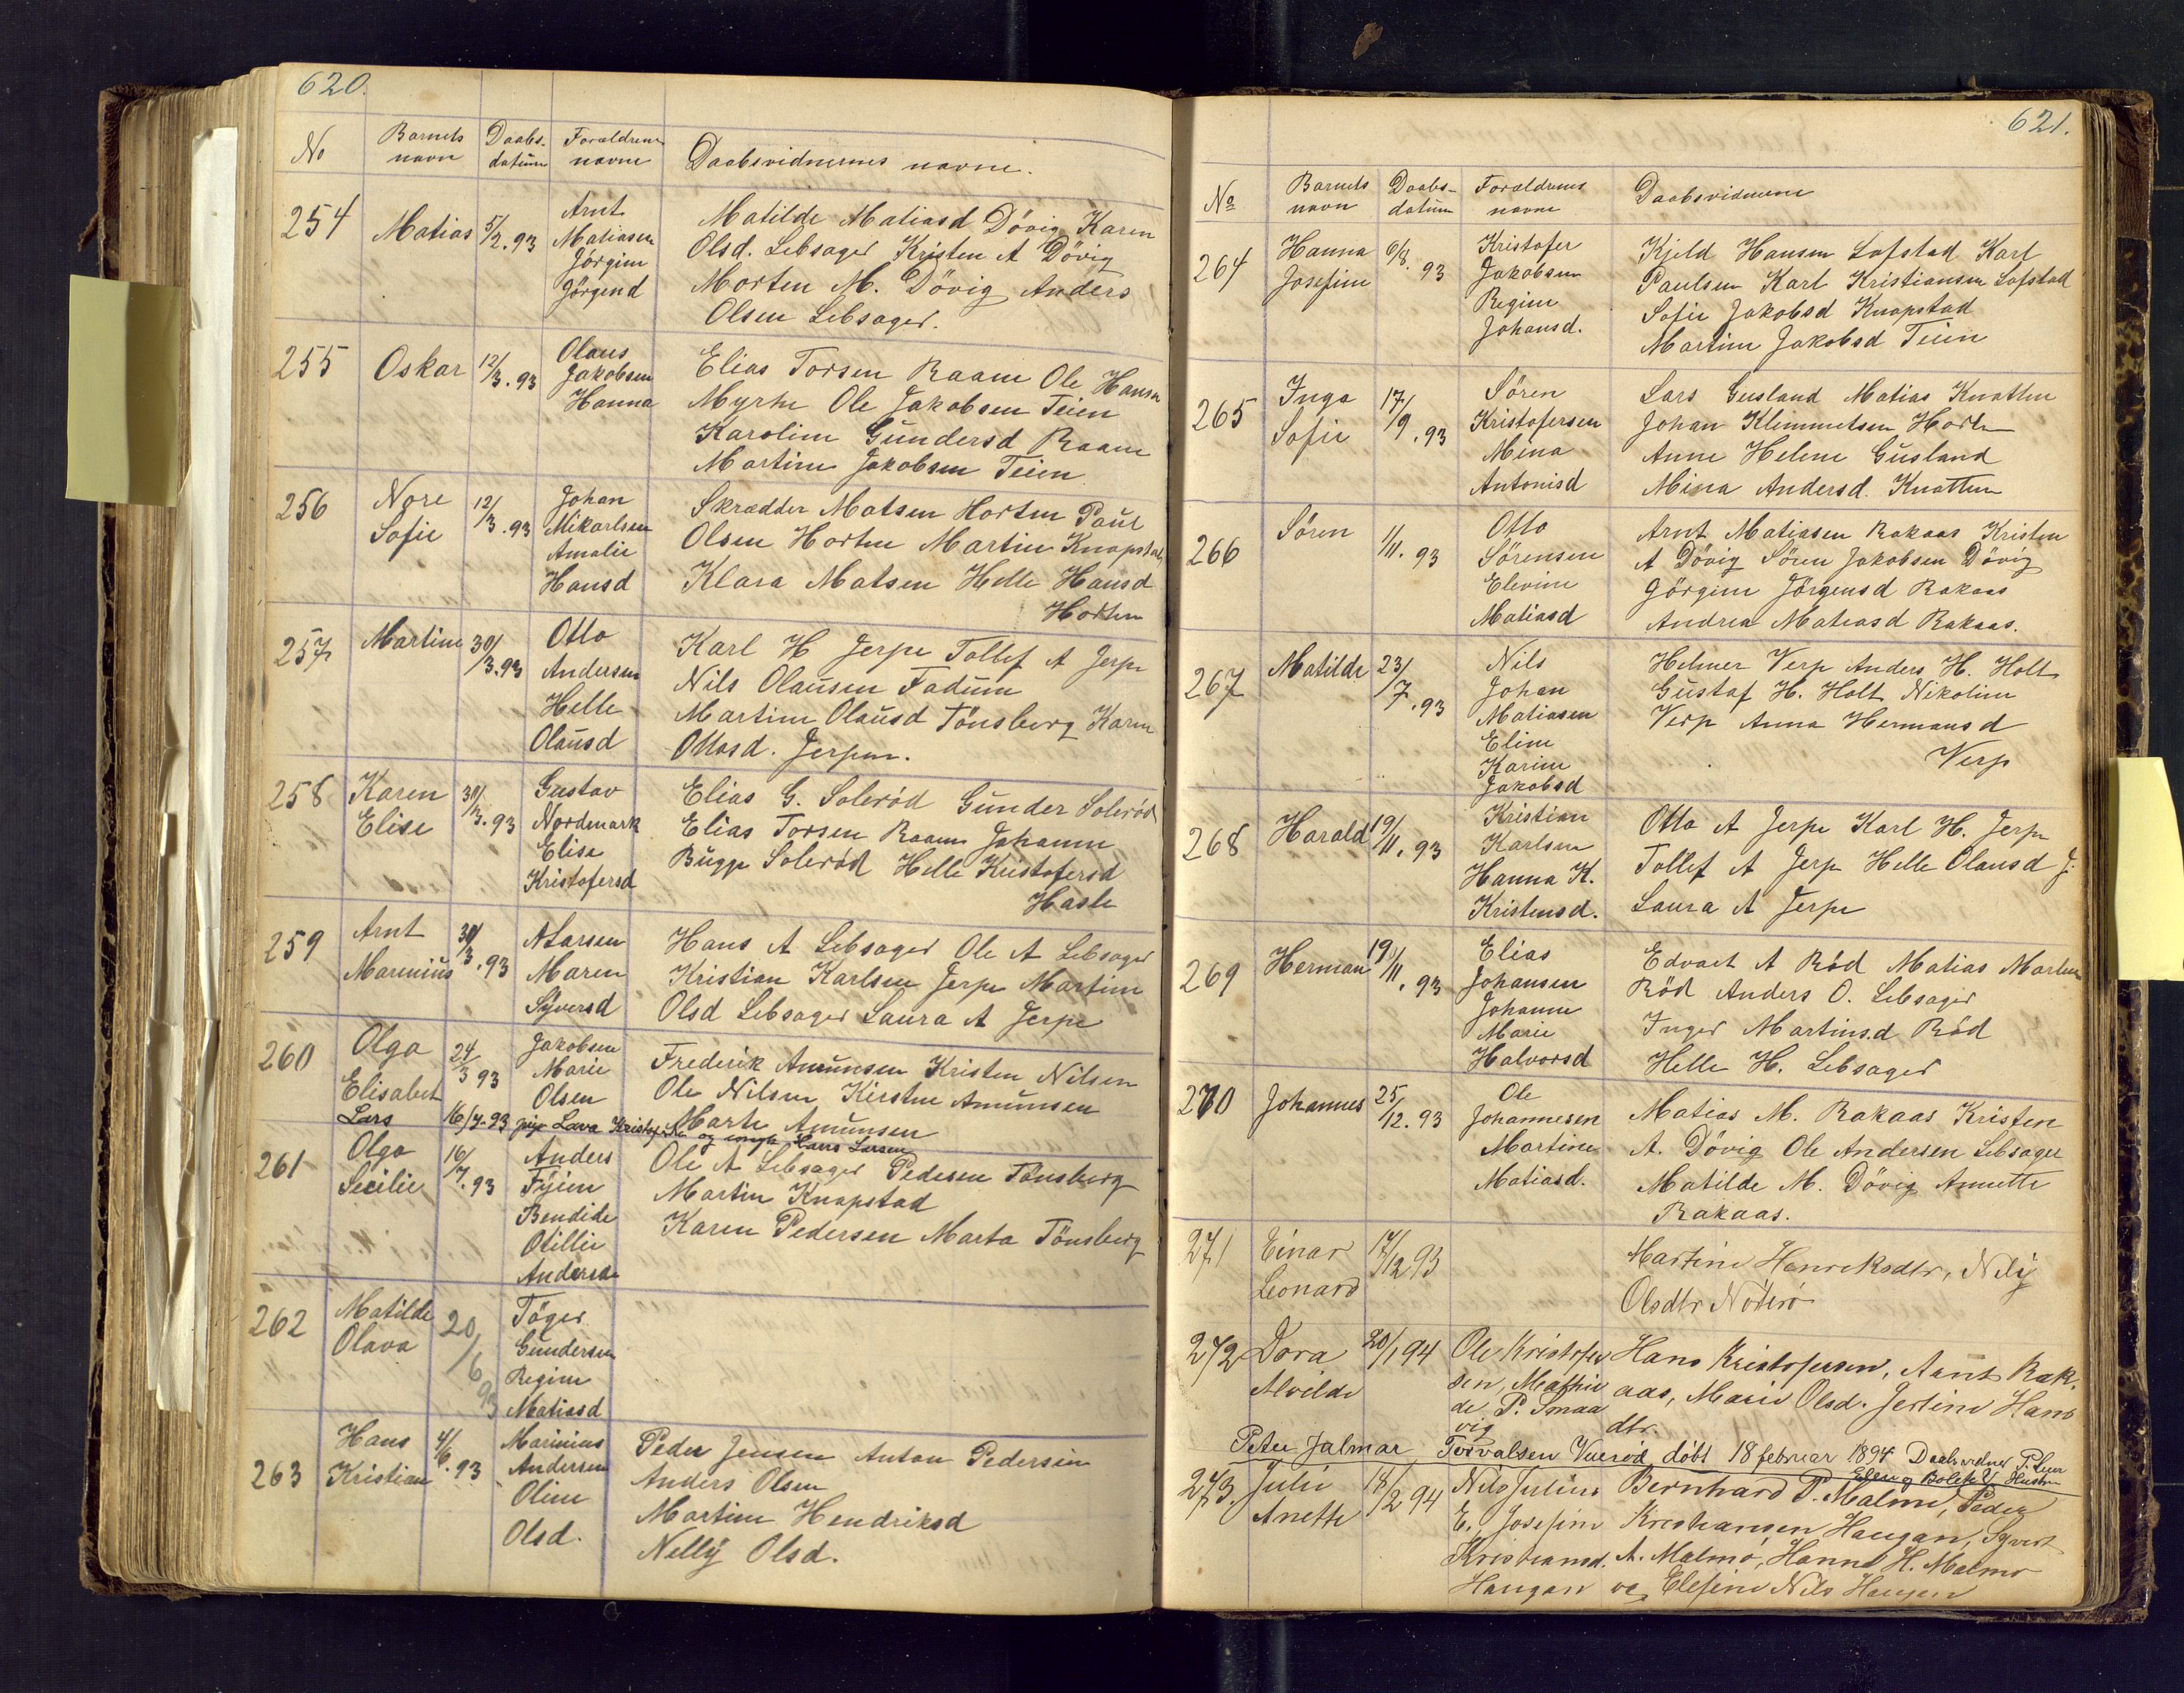 620.
No Barnets navn Daabs- datum Forældrens navne Daabsvidnernes navne.
254 Matias 5/2.93 Arnt Matiasen Jörgine Jörgend
Matilde Matiasd Dövig Karen
Olsd. Lebsager Kristen A Dövig
Morten M. Dövig Anders
Olsen Lebsager.
255 Oskar 12/3.93 Olaus Jakobsen Hanna
Elias Torsen Raane Ole Hansen
Myrhe Ole Jakobsen Teien
Karoline Gundersd Raane
Martine Jakobsen Teien
256 Nore Sofie 12/3.93 Johan Mikarlsen Amalie Hansd
Skrædder Matsen Horten Paul
Olsen Horten Martin Knapstad
Klara Matsen Helle Hansd
Horten
257 Martine 30/3.93 Otto Andersen Helle Olausd
Karl H Jerpe Tollef A Jerpe
Nils Olausen Fadum
Martine Olausd Tönsberg Karen
Ottosd. Jerpen.
258 Karen Elise 30/3.93 Gustav Nordmark Elise Kristofersd
Elias G. Solerød Gunder Solerød
Elias Torsen Raane Johanne
Bugge Solerød Helle Kristofersd
Hasle
259 Arnt Marenius 30/3.93 A Larsen Maren Syversd
Hans A Lebsager Ole A Lebsager
Kristian Karlsen Jerpe Martine
Olsd Lebsager Laura A Jerpe
260 Olga Elisabet 24/3 93 Jakobsen Marie Olsen
Frederik Amunsen Kristen Nilsen
Ole Nilsen Kirstine Amunsen
Marte Amunsen
Lars 16/7-93 Lava og Hans Larsen
261 Olga Secilie 16/7.93 Anders Fyien Bendide Otillie Andersen
Ole A Lebsager Pedersen Tönsberg
Martin Knapstad
Karen Pedersen Marta Tönsberg
262 Matilde Olava 20/6 93 Töger Gundersen Regine Matiasd
263 Hans Kristian 4/6.93 Marinius Andersen Oline Olsd.
Peder Jensen Anton Pedersen
Anders Olsen
Martine Hendriksd
Nelly Olsd.
621.
No Barnets navn Daabs- datum Forældrenes navne Daabsvidnerne
264 Hanna Josefine 6/8. 93 Kristofer Jakobsen Regine Johansd.
Kjeld Hansen Lofstad Karl
Paulsen Karl Kristiansen Lofstad
Sofie Jakobsd Knapstad
Martine Jakobsd Teien
265 Inga Sofie 17/9.93 Sören Kristofersen Mena Antonisd
Lars Gusland Matias Knatten
Johan Klemmetsen Horten
Anne Helene Gusland
Mina Andersd. Knatten
266 Sören 1/11.93 Otto Sörensen Elevine Matiasd
Arnt Matiasen Rakaas Kristen
A Dövig Sören Jakobsen Dövig
Jörgine Jörgensd Rakaas
Andrea Matiasd Rakaas.
267 Matilde 23/7.93 Nils Johan Matiasen Eline Karine Jakobsd
Helmer Verp Anders H. Holt
Gustaf H. Holt Nikoline
Verp Anna Hermansd
Verp
268 Harald 19/11.93 Kristian Karlsen Hanna K. Kristensd.
Otto A Jerpe Karl H. Jerpe
Tollef A Jerpe Helle Olausd J.
Laura A Jerpe
269 Herman 19/11.93 Elias Johansen Johanne Marie Halvorsd
Edvart A Röd Matias Martinsen
Röd Anders O. Lebsager
Inger Martinsd Röd
Helle H. Lebsager
270 Johannes 25/12.93 Ole Johannesen Martine Matiasd.
Matias M. Rakaas Kristen
A. Dövig Ole Andersen Lebsager
Matilde M. Dövig Annette
Rakaas.
271 Einar Leonard 17/12 93
Martine Henreksdtr, Nely
Olsdtr Nöterö
272 Dora Alvilde 20/1 94 Ole Kristofersen, Mathilde P. Smaavig
Hans Kristofersen, Arnt Rak-
aas, Marie Olsd. Jertine Hans
dtr.
Peter Jalmar Torvalsen Vuerød, döbt 18 februar 1894
273. Julie Anette 18/2 94 Nils Julius E. Josefine Kristiansd. Haugan
Bernhard P. Malmø, Peder
Kristiansen Haugan, Syvert
A. Malmø, Hanna H. Malmø
og Elefine Nils Haugan